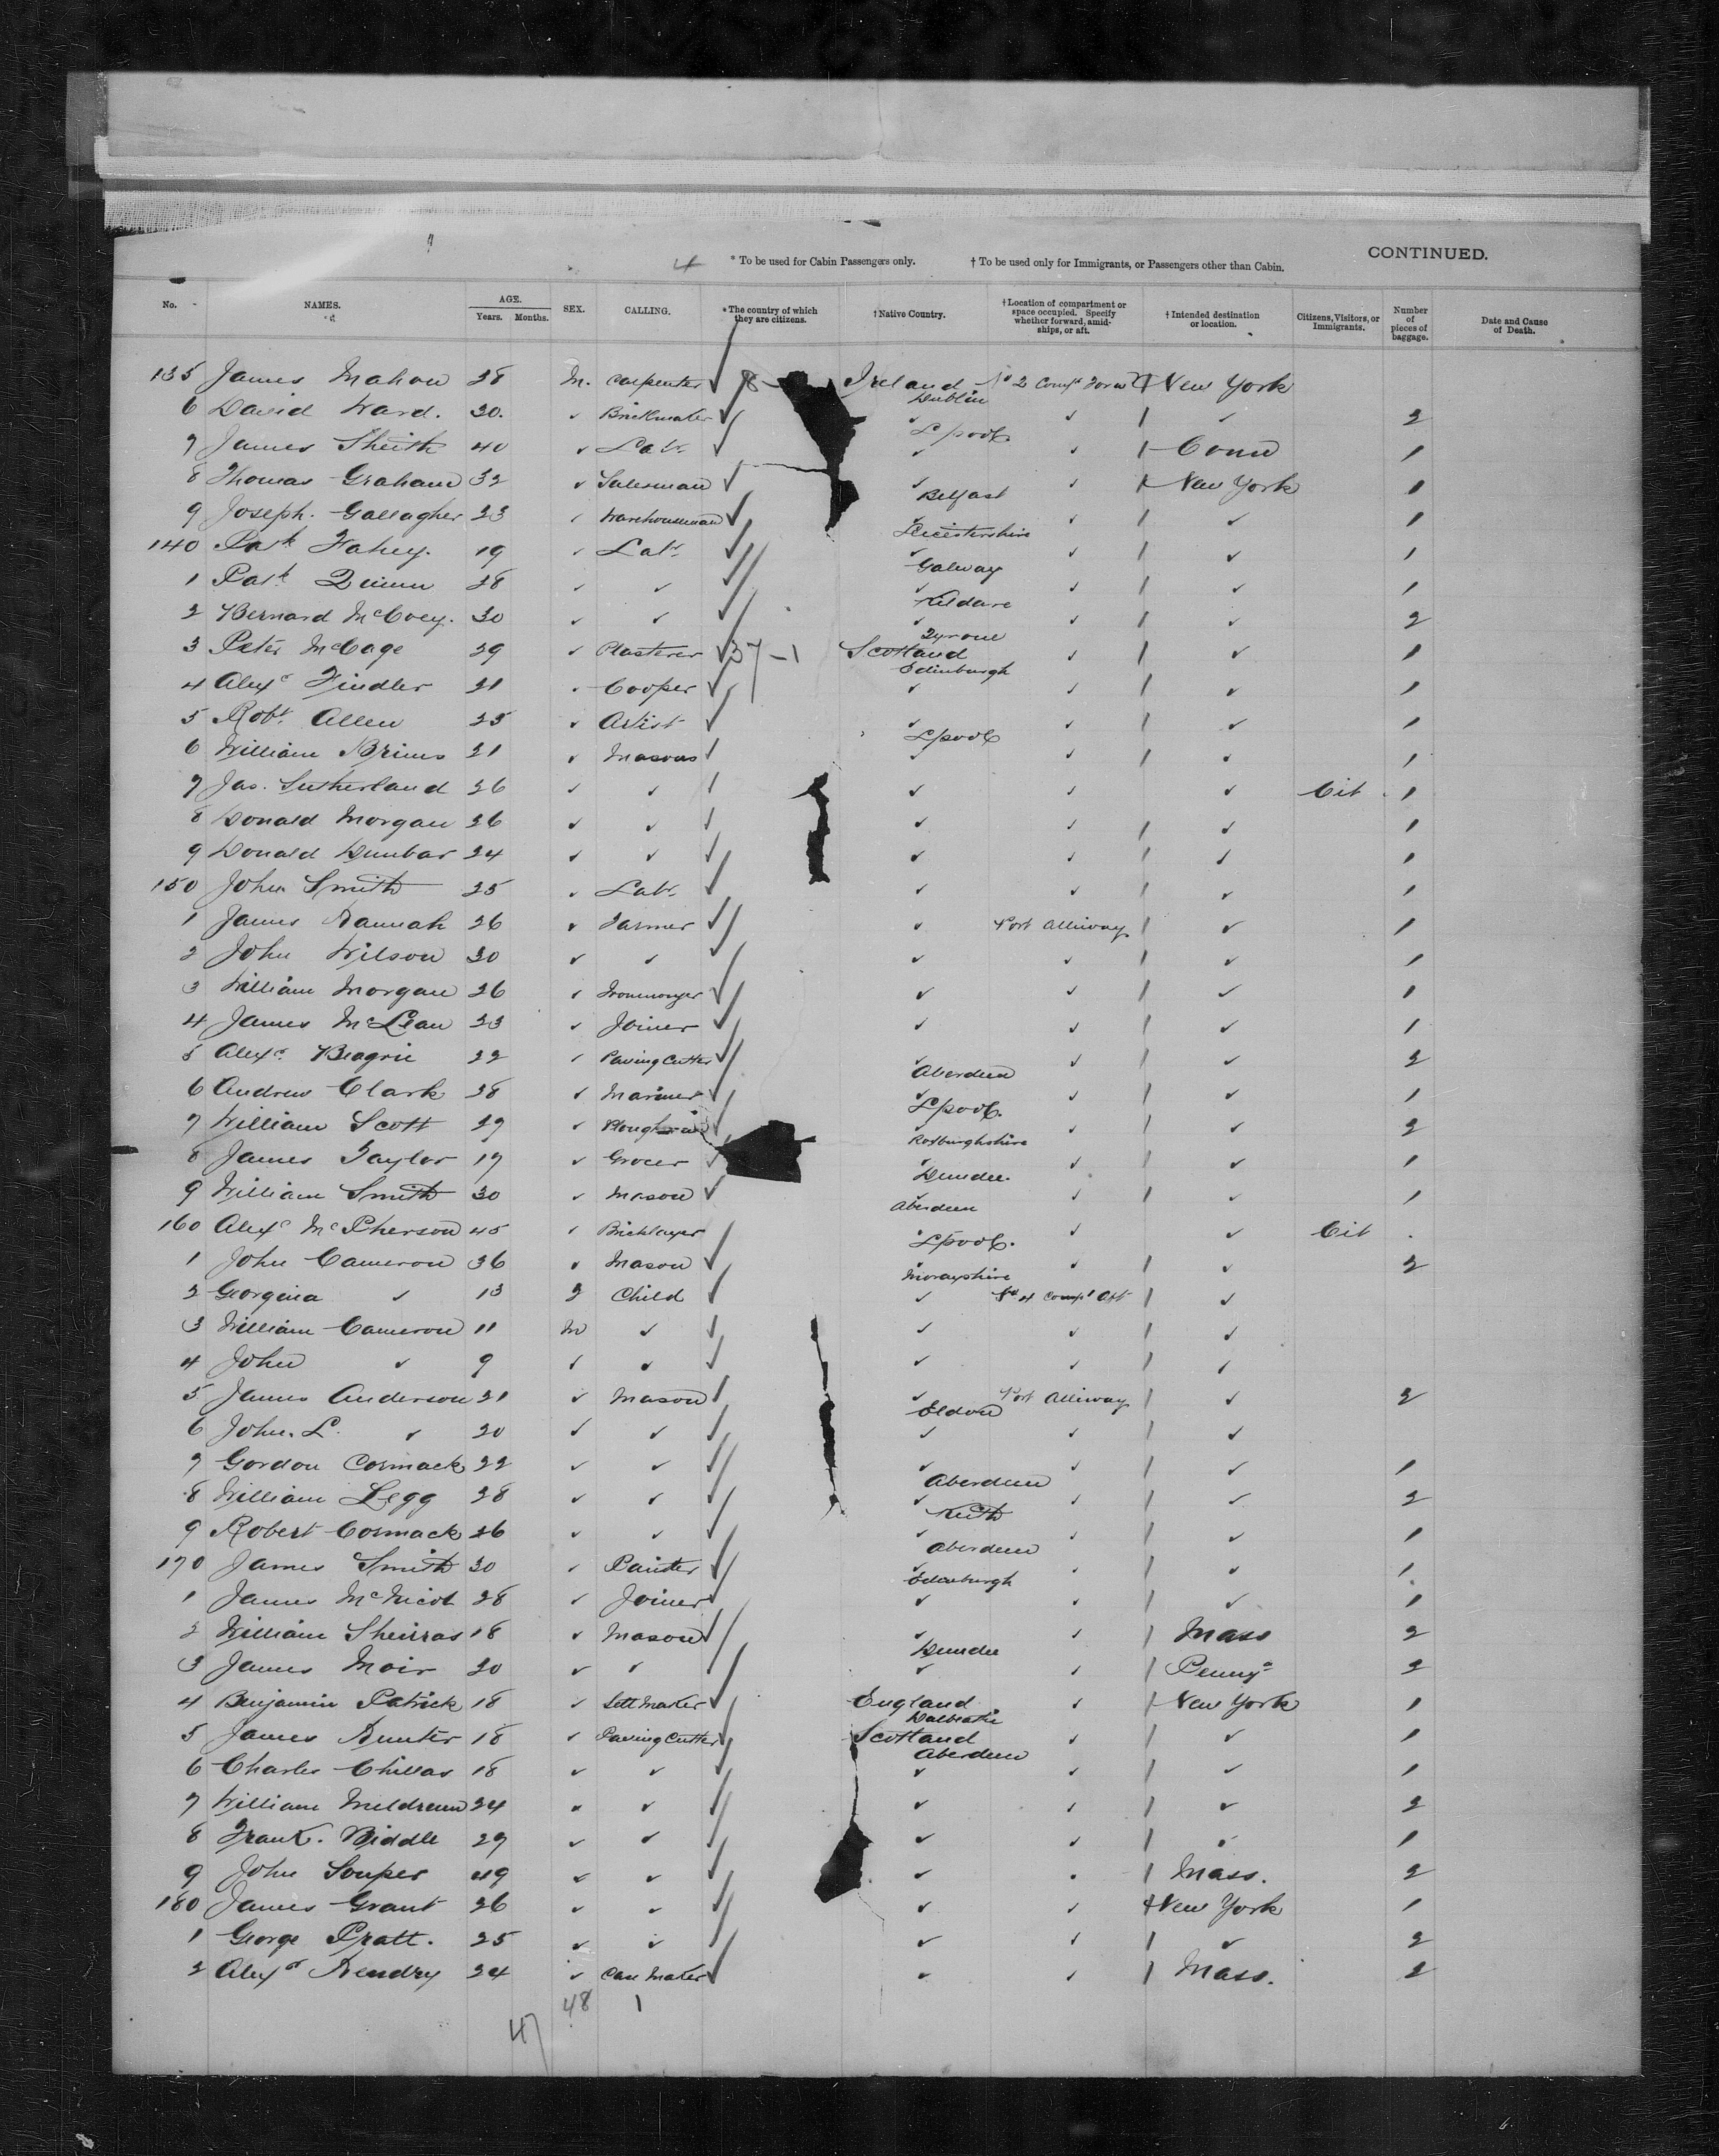 CONTINUED.
4 * To be used for Cabin Passengers only. † To be used only for Immigrants, or Passengers other than Cabin.
No. NAMES. AGE. Years. Months. SEX. CALLING. *The country of which they are citizens. †Native Country. †Location of compartment or space occupied. Specify whether forward, amidships, or aft. †Intended destination or location. Citizens, Visitors, or Immigrants. Number of pieces of baggage. Date and Cause of Death.
135 James Mahon 38 M. Carpenter ✓ 8 Ireland Dublin No 2 Compt Forwd 1 New York
6 David Ward. 30. ✓ ✓ ✓ Lpool ✓ 1 ✓ 2
7 James 40 ✓ Labr ✓ ✓ ✓ 1 Conn 1
8 Thomas Graham 32 ✓ Salesman ✓ ✓ Belfast ✓ 1 New York 1
9 Joseph. Gallagher 23 ✓ Warehouseman ✓ ✓ Leicestershire ✓ 1 ✓ 1
140 Patk Fahey. 19 ✓ Labr ✓ ✓ Galway ✓ 1 ✓ 1
1 Patk Quinn 28 ✓ ✓ ✓ ✓ Kildare ✓ 1 ✓ 1
2 Bernard McCoey. 30 ✓ ✓ ✓ ✓ Tyrone ✓ 1 ✓ 2
3 Peter McCage 29 ✓ Plasterer ✓ 37-1 Scotland Edinburgh ✓ 1 ✓ 1
4 Alexr Findler 21 ✓ Cooper ✓ ✓ ✓ 1 ✓ 1
5 Robt. Allen 25 ✓ Artist ✓ ✓ Lpool ✓ 1 ✓ 1
6 William Brims 21 ✓ Masons ✓ ✓ ✓ 1 ✓ 1
7 Jas. Sutherland 26 ✓ ✓ ✓ ✓ ✓ ✓ Cit 1
8 Donald Morgan 26 ✓ ✓ ✓ ✓ ✓ 1 ✓ 1
9 Donald Dunbar 24 ✓ ✓ ✓ ✓ ✓ 1 ✓ 1
150 John Smith 25 ✓ Labr. ✓ ✓ ✓ 1 ✓ 1
1 James Hannah 26 ✓ Farmer ✓ ✓ Port Alliway 1 ✓ 1
2 John Wilson 30 ✓ ✓ ✓ ✓ ✓ 1 ✓ 1
3 William Morgan 26 ✓ Ironmonger ✓ ✓ ✓ 1 ✓ 1
4 James McLean 23 ✓ Joiner ✓ ✓ ✓ 1 ✓ 1
5 Alexr. Beagrie 22 ✓ Paving Cutter ✓ ✓ Aberdeen ✓ 1 ✓ 2
6 Andrew Clark 38 ✓ Mariner ✓ ✓ Lpool. ✓ 1 ✓ 1
7 William Scott 29 ✓ ✓ ✓ Roxburghshire ✓ 1 ✓ 2
8 James Taylor 19 ✓ Grocer ✓ ✓ Dundee. ✓ 1 ✓ 1
9 William Smith 30 ✓ Mason ✓ ✓ Aberdeen ✓ 1 ✓ 1
160 Alexr McPherson 45 ✓ Bricklayer ✓ Lpool. ✓ ✓ Cit
1 John Cameron 36 ✓ Mason ✓ ✓ Morayshire ✓ 1 ✓ 2
2 Georgina ✓ 13 F Child ✓ ✓ No 4 Compt Aft 1 ✓
3 William Cameron 11 M ✓ ✓ ✓ ✓ 1 ✓
4 John ✓ 9 ✓ ✓ ✓ ✓ ✓ 1 ✓
5 James Anderson 21 ✓ Mason ✓ ✓ Port Alliway 1 ✓ 2
6 John. L. ✓ 20 ✓ ✓ ✓ ✓ ✓ 1 ✓
7 Gordon Cormack 22 ✓ ✓ ✓ ✓ Aberdeen ✓ 1 ✓ 1
8 William Legg 28 ✓ ✓ ✓ ✓ Keith ✓ 1 ✓ 2
9 Robert Cormack 26 ✓ ✓ ✓ ✓ Aberdeen ✓ 1 ✓ 1
170 James Smith 30 ✓ Painter ✓ ✓ Edinburgh ✓ 1 ✓ 1
1 James McNicol 28 ✓ Joiner ✓ ✓ ✓ 1 ✓ 1
2 William Sheirras 18 ✓ Mason ✓ ✓ Dundee ✓ 1 Mass 2
3 James Moir 20 ✓ ✓ ✓ ✓ ✓ 1 Penny 2
4 Benjamin Patrick 18 ✓ Sett Maker ✓ England Dalbeattie ✓ 1 New York 1
5 James Hunter 18 ✓ Paving Cutter ✓ Scotland Aberdeen ✓ 1 ✓ 1
6 Charles Chillas 18 ✓ ✓ ✓ ✓ ✓ 1 ✓ 1
7 William Meldrum 24 ✓ ✓ ✓ ✓ ✓ 1 ✓ 2
8 Frank. Riddle 29 ✓ ✓ ✓ ✓ ✓ 1 ✓ 1
9 John Souper 49 ✓ ✓ ✓ ✓ ✓ 1 Mass. 2
180 James Grant 26 ✓ ✓ ✓ ✓ ✓ 1 New York 1
1 George Pratt. 25 ✓ ✓ ✓ ✓ ✓ 1 ✓ 2
2 Alexr Hendry 24 ✓ Can Maker ✓ ✓ ✓ 1 Mass. 2
48 1
47